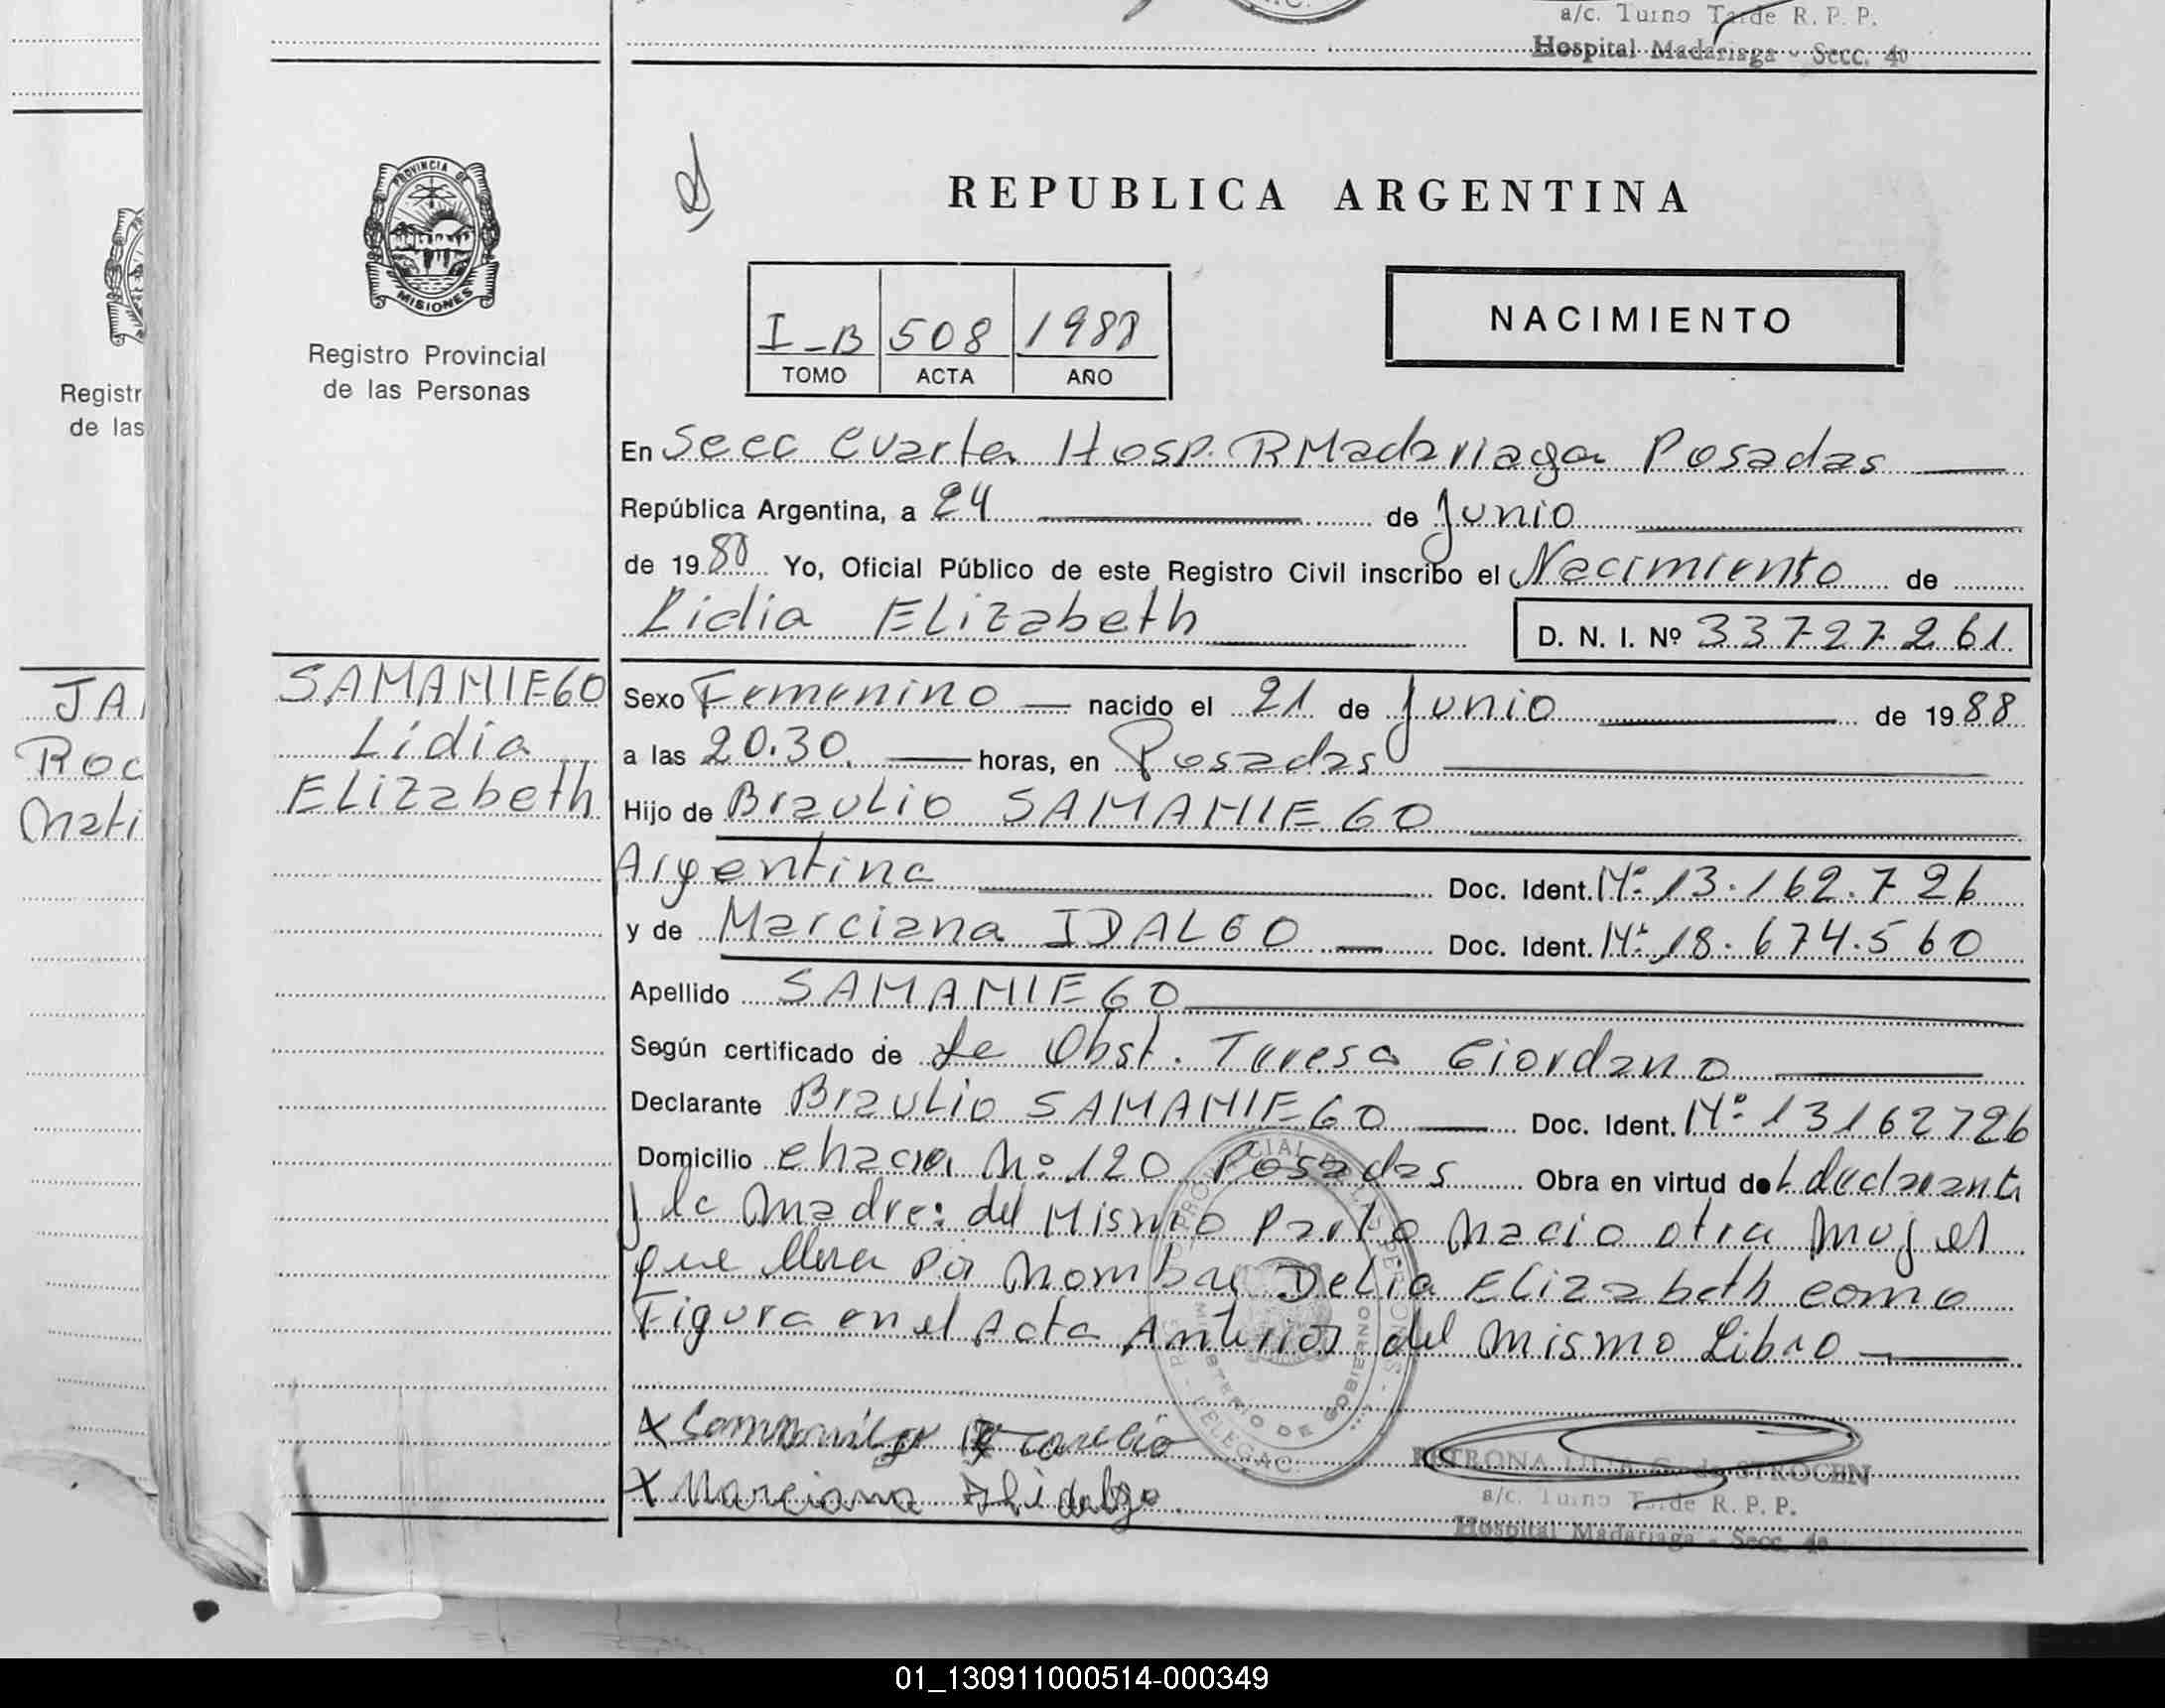 a/c. Turno Tarde R. P. P.
Hospital Madariaga - Secc. 4º
PROVINCIA DE
MISIONES
Registro Provincial
de las Personas
Registr
de las
REPUBLICA ARGENTINA
I-B 508 1988
TOMO ACTA AÑO
NACIMIENTO
En Secc Cuarta Hosp. R Madariaga Posadas
República Argentina, a 24 de Junio
de 1988 Yo, Oficial Público de este Registro Civil inscribo el Nacimiento de
Lidia Elizabeth
D. N. I. Nº 33727261
JA
Roc
Mati
SAMANIEGO
Lidia
Elizabeth
Sexo Femenino nacido el 21 de Junio de 1988
a las 20.30. horas, en Posadas
Hijo de Braulio SAMANIEGO
Argentina Doc. Ident. Nº 13.162.726
y de Marciana IDALGO Doc. Ident. Nº 18.674.560
Apellido SAMANIEGO
Según certificado de la Obst. Teresa Giordano
Declarante Braulio SAMANIEGO Doc. Ident. Nº 13162726
Domicilio Chacra Nº 120 Posadas Obra en virtud del declarante
y la Madre: del Mismo Parto Nacio otra Mujer
que lleva por Nombre Delia Elizabeth como
Figura en el Acta Anterior del Mismo Libro
X Marciana Hidalgo.
PETRONA STROCEN
a/c. Turno Tarde R. P. P.
Hospital Madariaga - Secc. 4º
MINISTERIO DE GOBIERNO
01_130911000514-000349